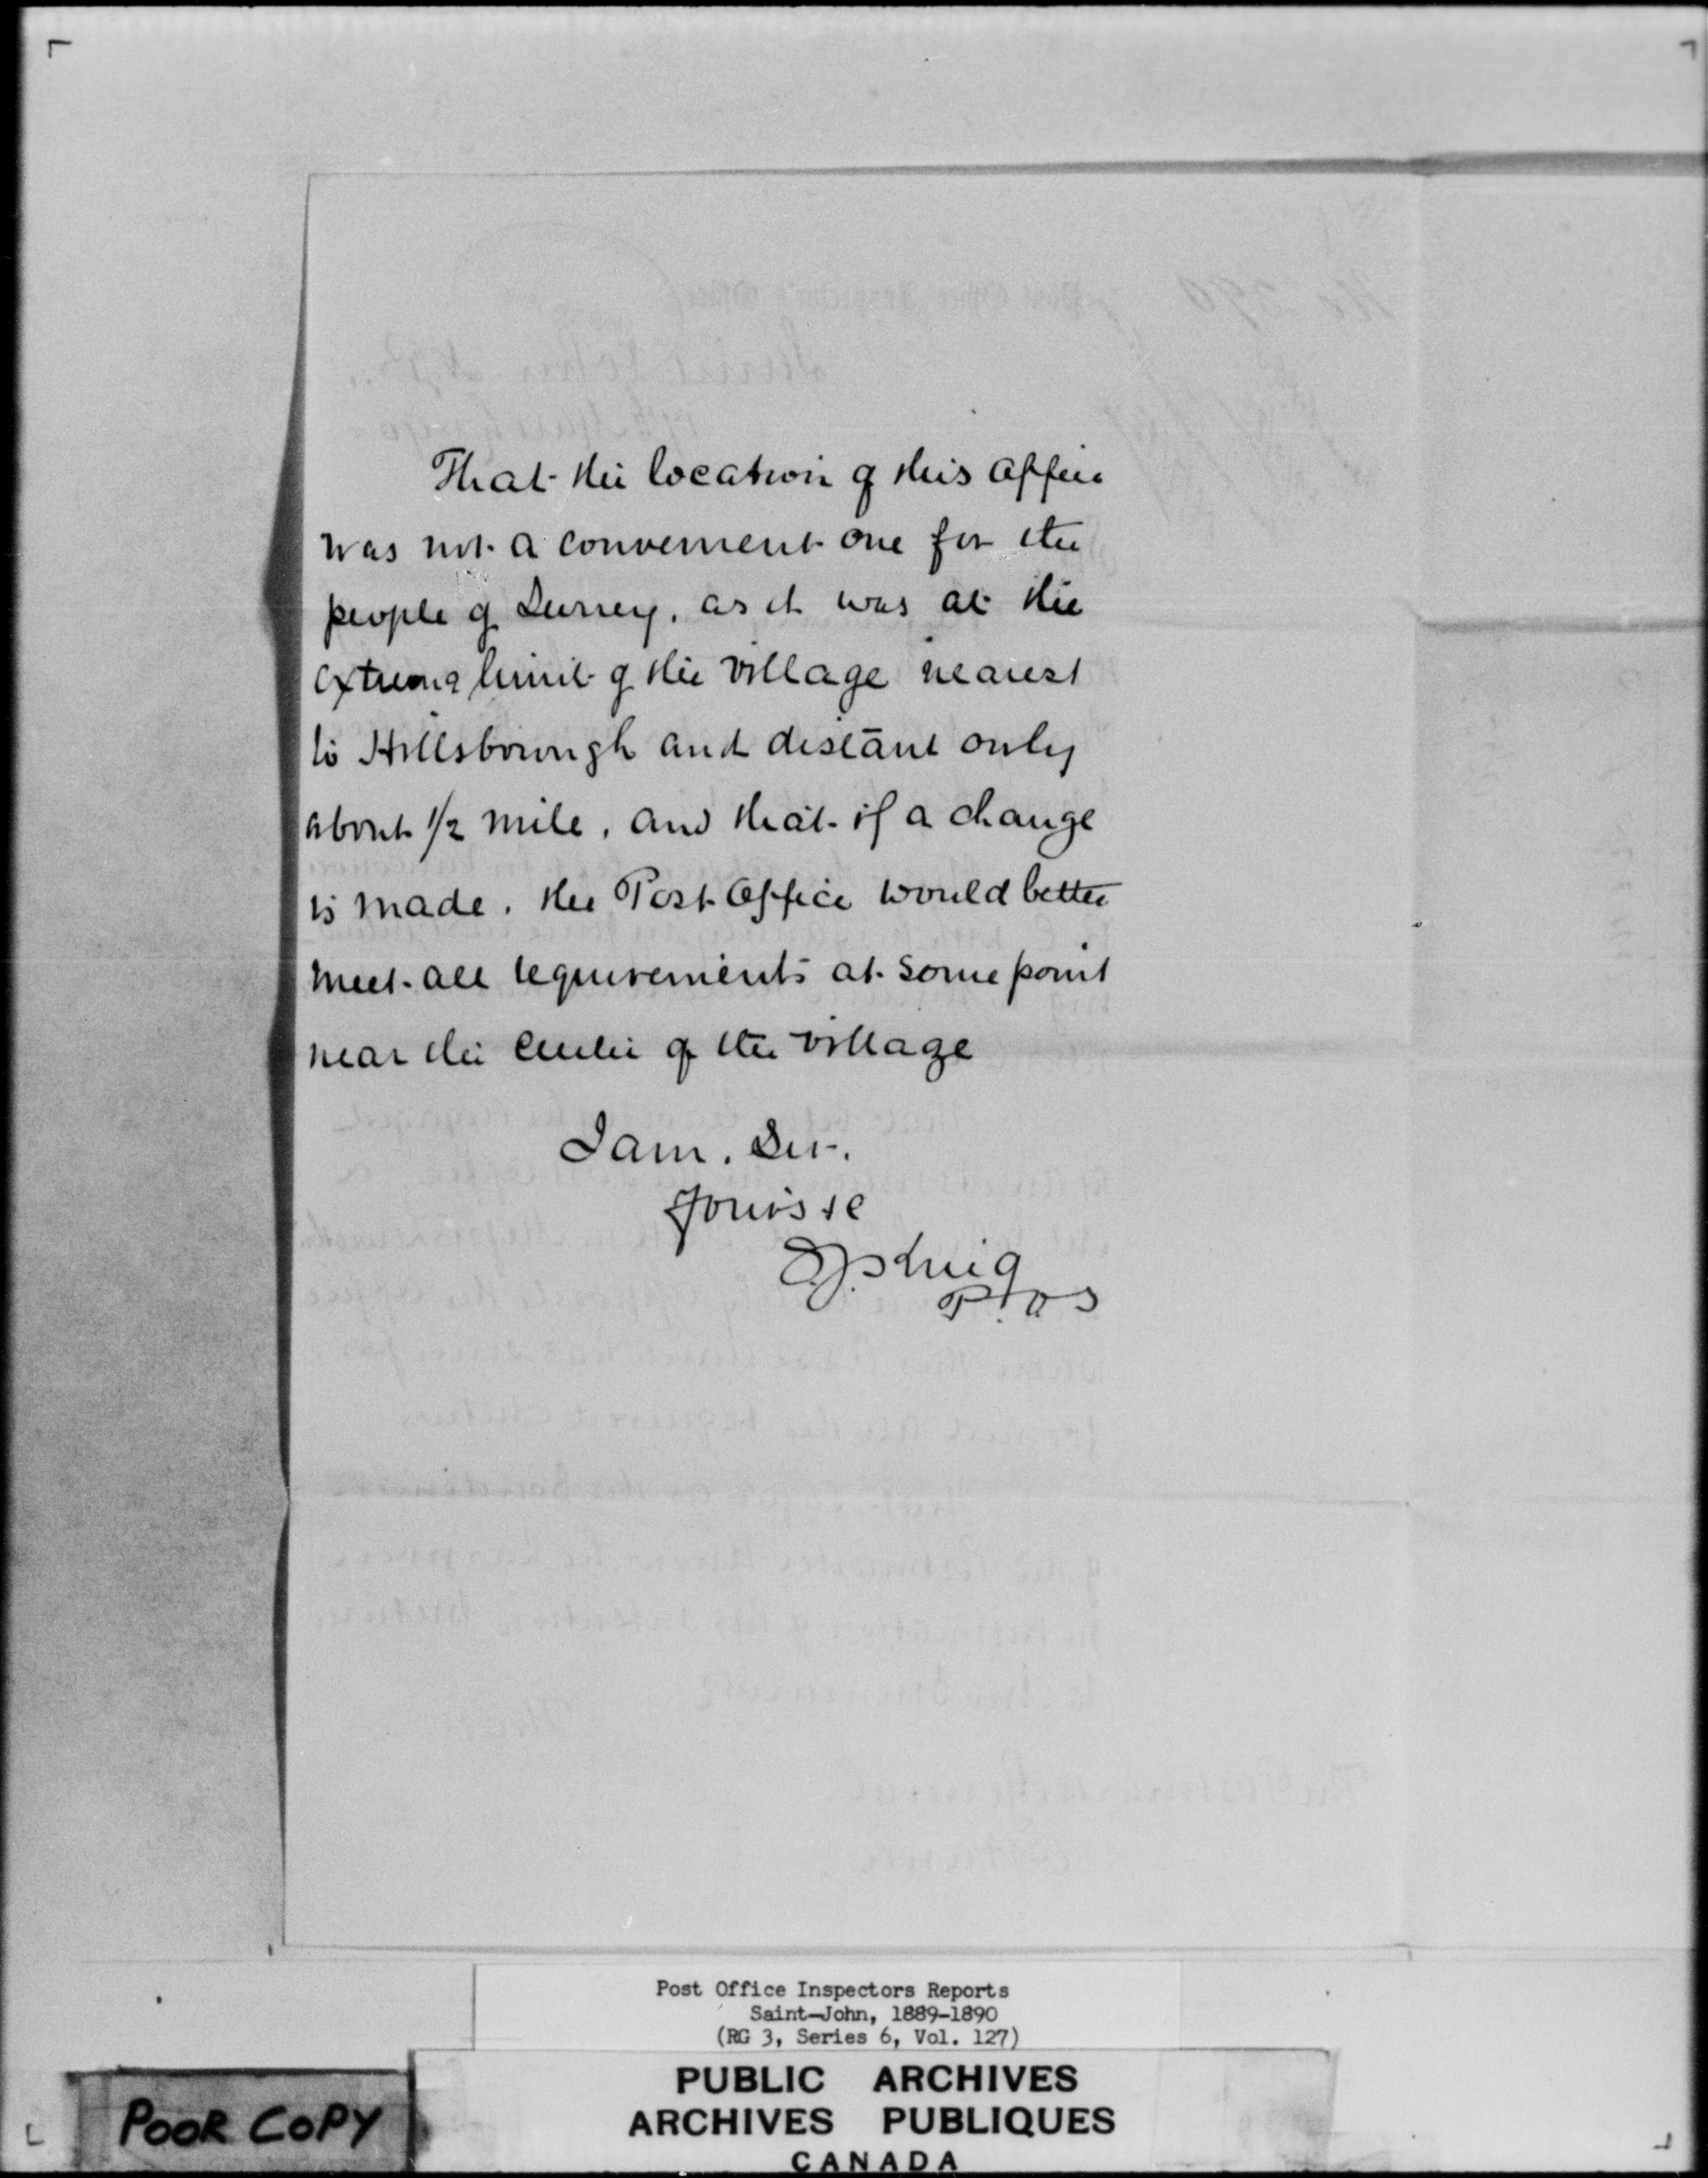 That the location of this Office
was not a convenient one for the
people of Surrey, as it was at the
extreme limit of the village nearest
to Hillsborough and distant only
about 1/2 mile, and that if a change
is made, the Post Office would better
meet all requirements at some point
near the centre of the village
I am, Sir,
Yours &c
S. J. King
P.O.S
Post Office Inspectors Reports
Saint-John, 1889-1890
(RG 3, Series 6, Vol. 127)
PUBLIC ARCHIVES
ARCHIVES PUBLIQUES
CANADA
POOR COPY